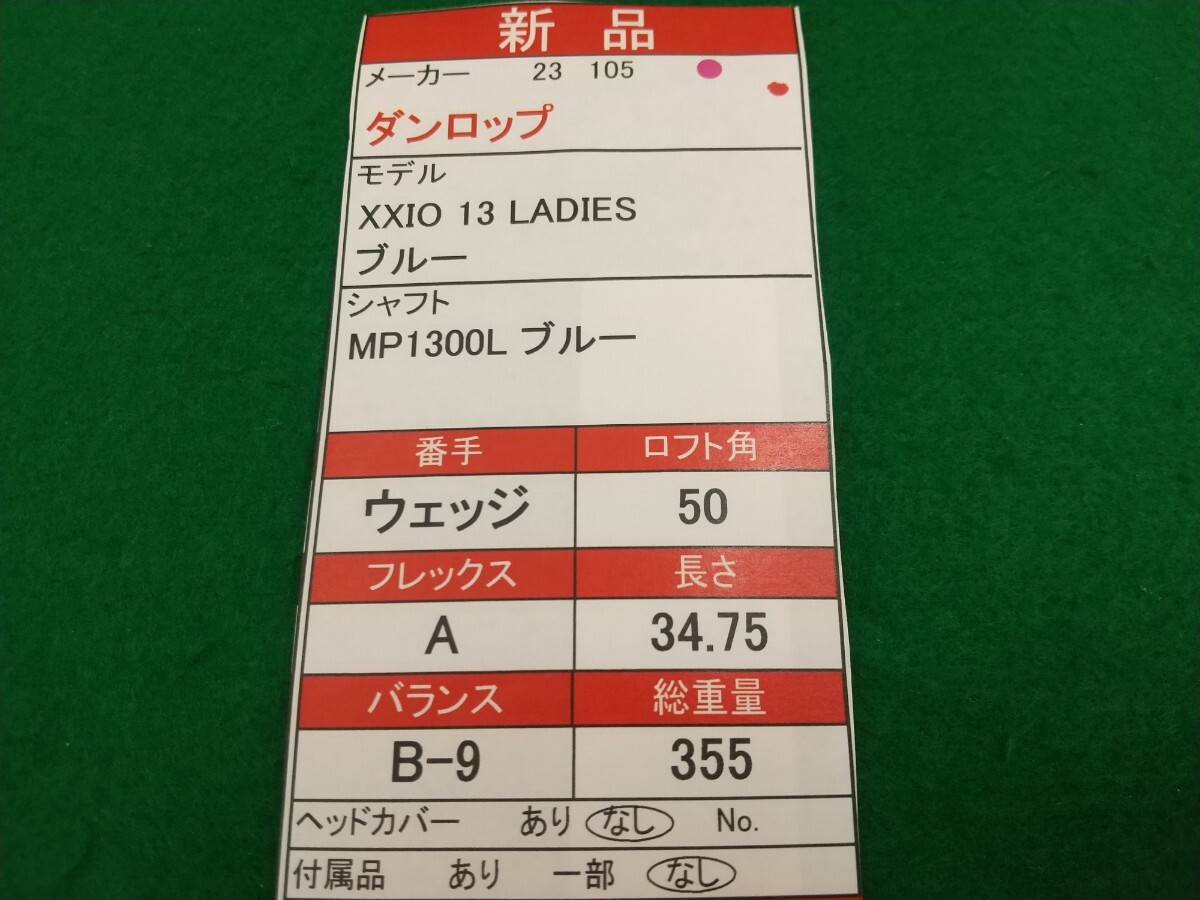 新 品
メーカー 23 105
ダンロップ
モデル
XXIO 13 LADIES
ブルー
シャフト
MP1300L ブルー
番手 ロフト角
ウェッジ 50
フレックス 長さ
A 34.75
バランス 総重量
B-9 355
ヘッドカバー あり なし No.
付属品 あり 一部 なし